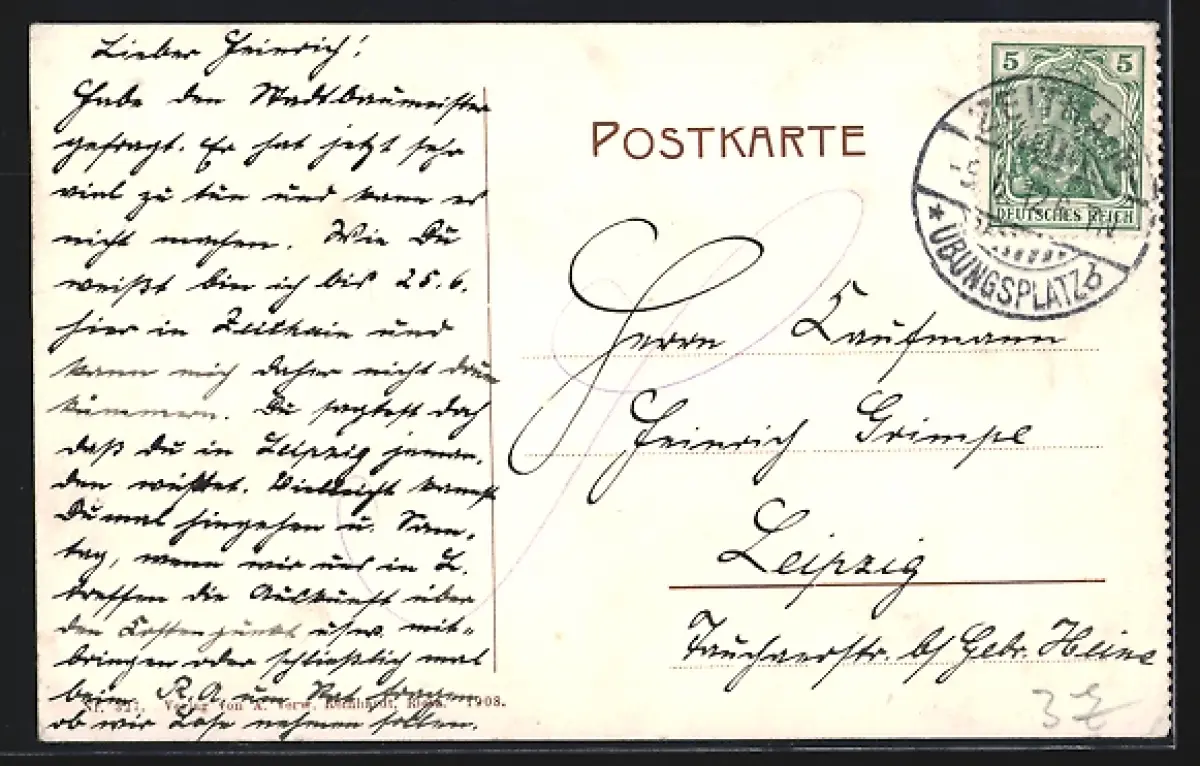 Lieber Heinrich!
Habe den Stadtbaumeister
gefragt. Er hat jetzt sehr
viel zu tun und kann es
nicht machen. Wie Du
weißt bin ich bis 25.6.
hier in Zeithain und
kann mich daher nicht drum
kümmern. Du sagtest doch
daß du in Leipzig jeman-
den wüßtet. Vielleicht kannst
Du mal hingehen u. Sonn-
tag, wenn wir uns in L.
treffen die Auskunft über
den Kostenpunkt usw. mit-
bringen oder schließlich mal
beim R.A. um Rat fragen
ob wir Lose nehmen sollen.
Verlag von A. verw. Reinhardt, Riesa. 1908.
POSTKARTE
5 5
DEUTSCHES REICH
ZEITHAIN
* ÜBUNGSPLATZ b
Herrn Kaufmann
Heinrich Grimpe
Leipzig
Tauchaerstr. b/ Gebr. Heine